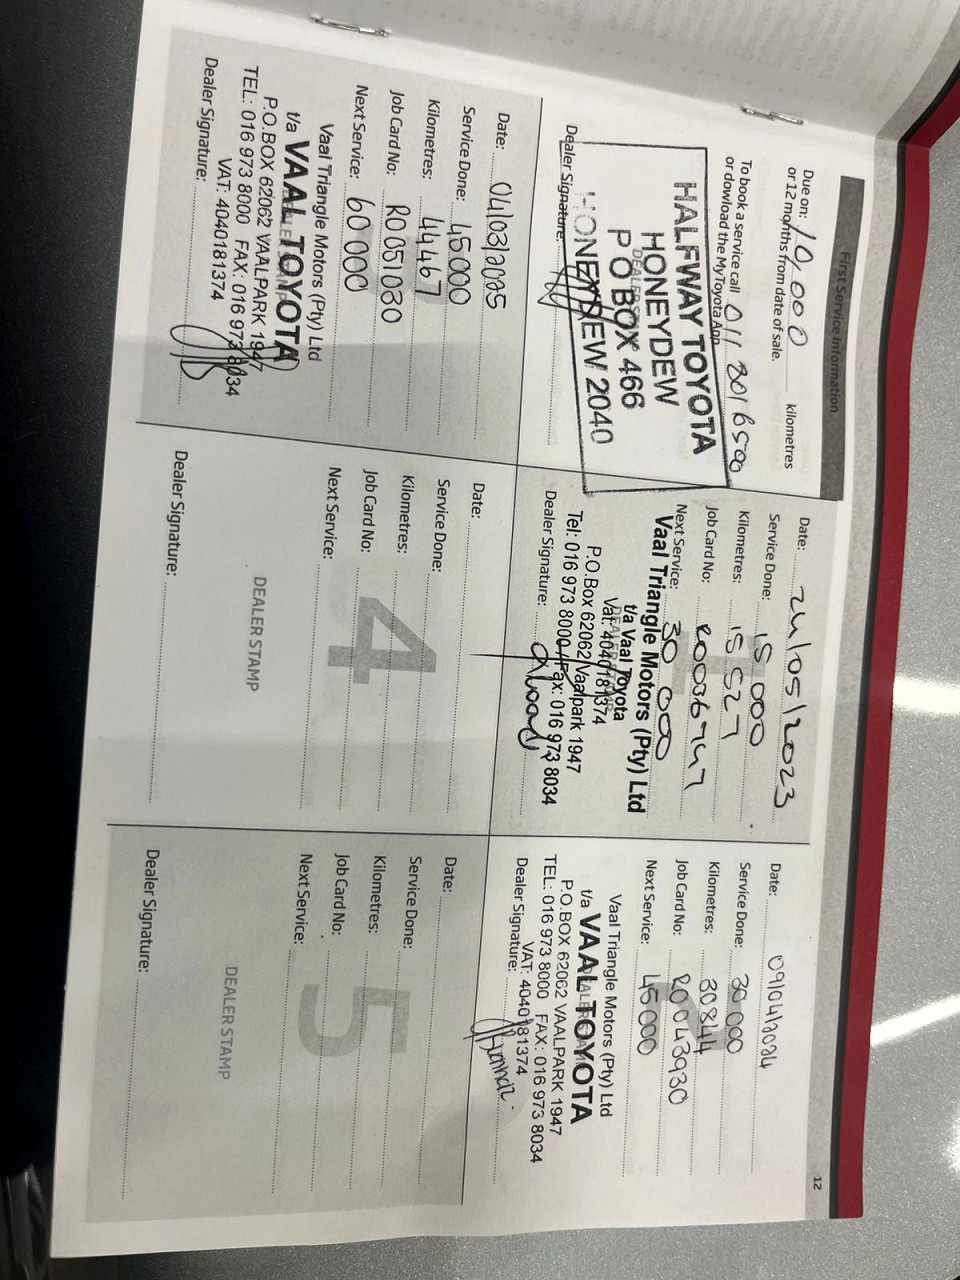 12
First Service Information
Due on: 10,000 kilometres
or 12 months from date of sale.
To book a service call 011 301 6500
or dowload the MyToyota App
HALFWAY TOYOTA
HONEYDEW
P O BOX 466
HONEYDEW 2040
Dealer Signature:
Date: 24/05/2023
Service Done: 15 000
Kilometres: 15 527
Job Card No: R0036747
Next Service: 30 000
Vaal Triangle Motors (Pty) Ltd
t/a Vaal Toyota
Vat: 4040181374
P.O.Box 62062 Vaalpark 1947
Tel: 016 973 8000 / Fax: 016 973 8034
Dealer Signature:
Date: 09/04/2024
Service Done: 30 000
Kilometres: 30844
Job Card No: R0043930
Next Service: 45000
Vaal Triangle Motors (Pty) Ltd
t/a VAAL TOYOTA
P.O.BOX 62062 VAALPARK 1947
TEL: 016 973 8000 FAX: 016 973 8034
VAT: 4040181374
Dealer Signature:
Date: 04/03/2025
Service Done: 45000
Kilometres: 44467
Job Card No: R0051080
Next Service: 60000
Vaal Triangle Motors (Pty) Ltd
t/a VAAL TOYOTA
P.O.BOX 62062 VAALPARK 1947
TEL: 016 973 8000 FAX: 016 973 8034
VAT: 4040181374
Dealer Signature:
4
Date:
Service Done:
Kilometres:
Job Card No:
Next Service:
DEALER STAMP
Dealer Signature:
5
Date:
Service Done:
Kilometres:
Job Card No:
Next Service:
DEALER STAMP
Dealer Signature: